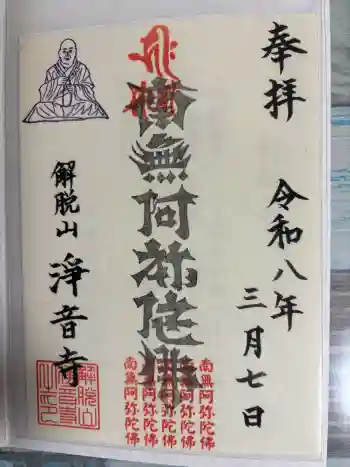 奉拝
令和八年
三月七日
南無阿弥陀佛
南無阿弥陀佛
南無阿弥陀佛
南無阿弥陀佛
南無阿弥陀佛
南無阿弥陀佛
解脱山 淨音寺